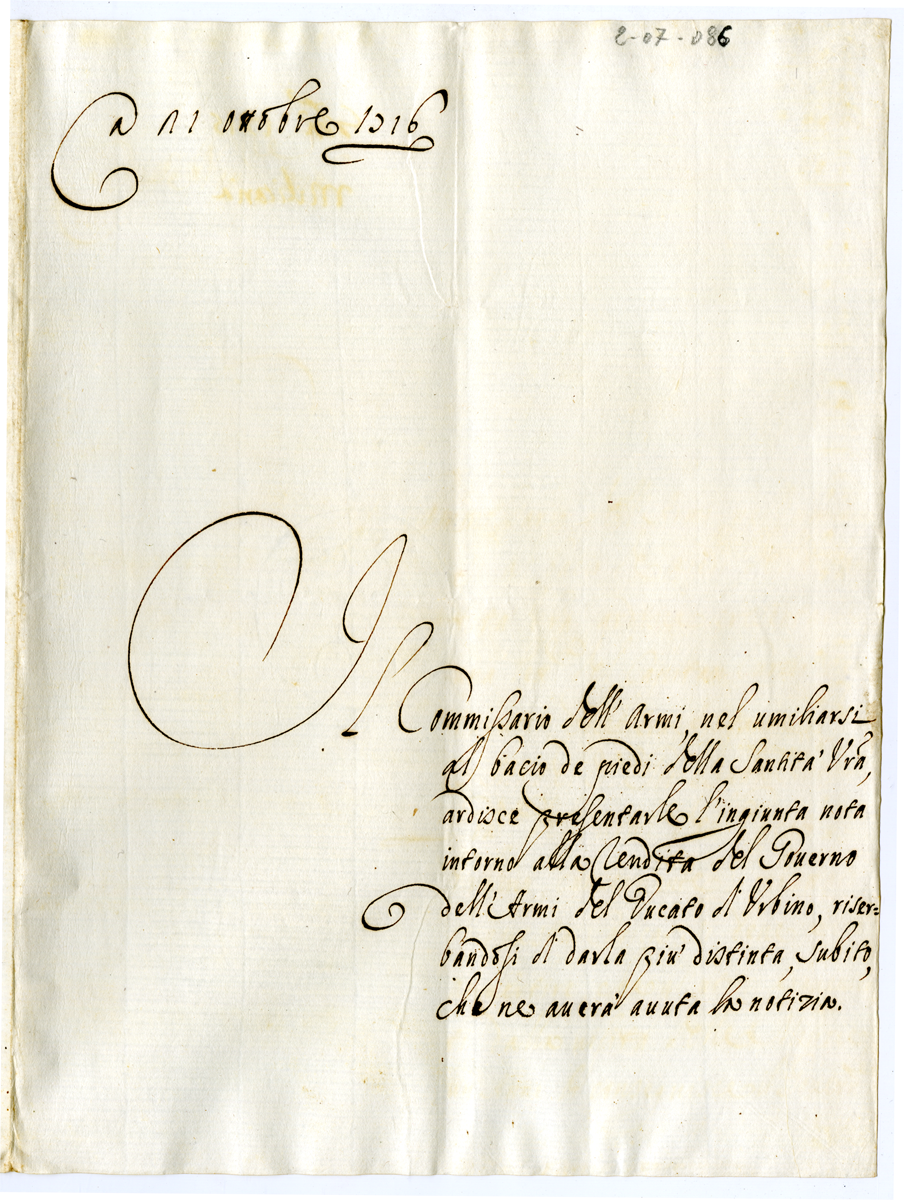 2-07-086
A 11 ottobre 1716
Il Commissario dell' Armi, nel umiliarsi
al bacio de piedi della Santità Vrã,
ardisce presentarle l'ingiunta nota
intorno alla Rendita del Governo
dell' Armi del Ducato d' Urbino, riser=
bandosi di darla più distinta, subito,
che ne averà avuta la notizia.